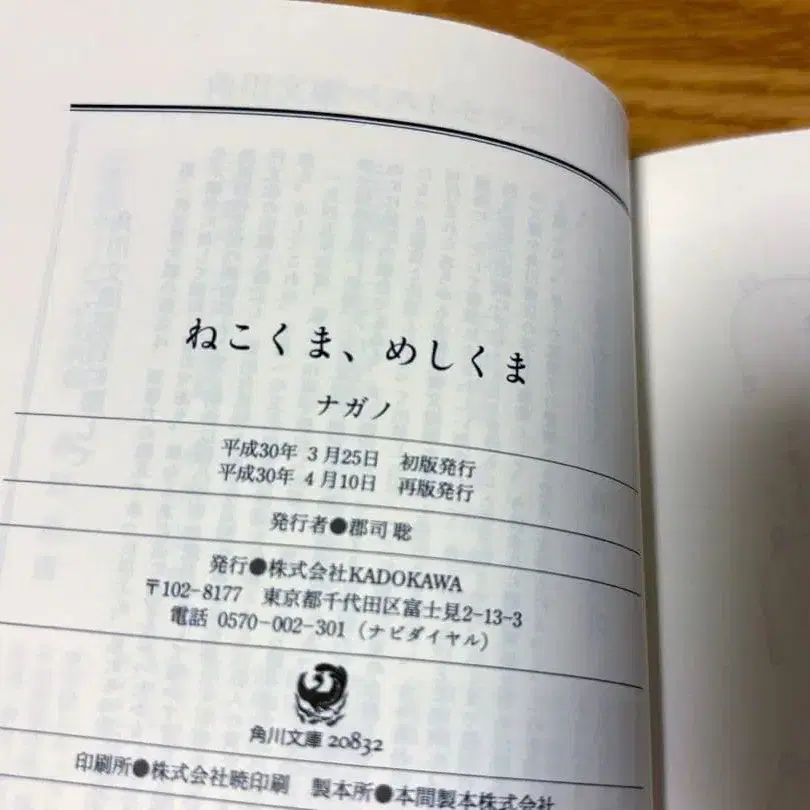 ねこくま、めしくま
ナガノ
平成30年 3月25日　初版発行
平成30年 4月10日　再版発行
発行者●郡司 聡
発行●株式会社KADOKAWA
〒102-8177　東京都千代田区富士見2-13-3
電話 0570-002-301（ナビダイヤル）
角川文庫 20832
印刷所●株式会社暁印刷　製本所●本間製本株式会社